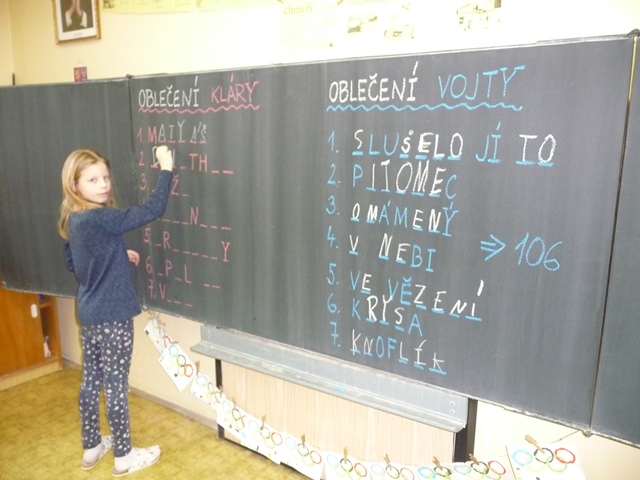 OBLEČENÍ KLÁRY
1. MATYÁŠ
2. _ _ _ TH _ _
3. _ _ Ž _
4. _ _ _ N _ _
5. _ R _ _ _ _ Y
6. _ P _ L _ _
7. V _ _ _
OBLEČENÍ VOJTY
1. SLUŠELO JÍ TO
2. PITOMEC
3. OMÁMENÝ
4. V NEBI
5. VE VĚZENÍ
6. KRYSA
7. KNOFLÍK
⇒ 106